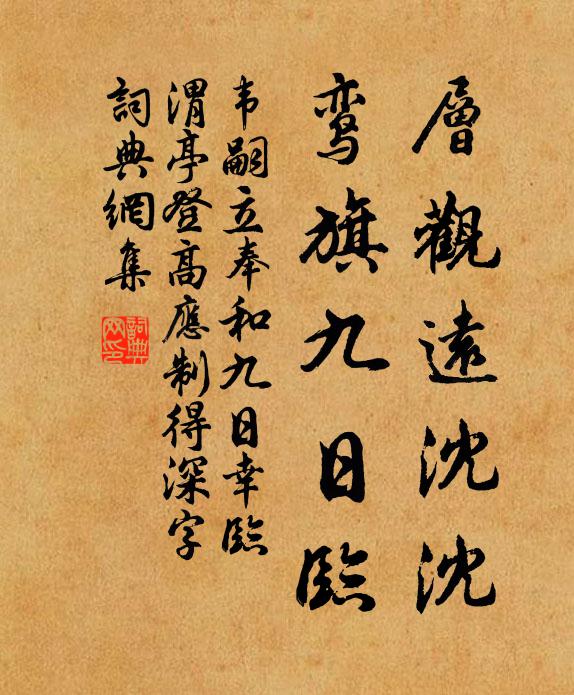 層觀遠沈沈
鸾旗九日臨
韦嗣立奉和九日幸臨
渭亭登高應制得深字
詞典網集
詞典
网印